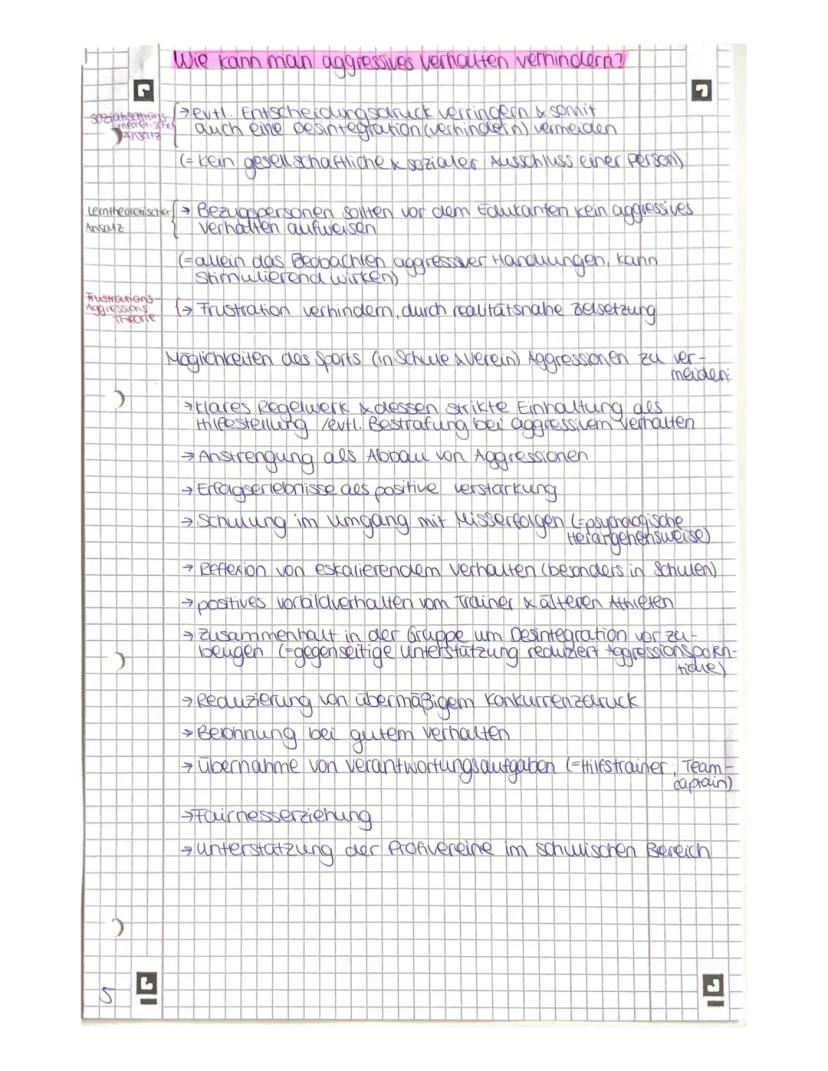 Wie kann man aggressives Verhalten verhindern?
→ evtl. Entscheidungsdruck verringern & somit
Ansatz
auch eine Desintegration (verhindern) vermeiden
(= kein gesellschaftliche & sozialer Ausschluss einer Person)
Lerntheoretischer
→ Bezugspersonen sollten vor dem Edukanten kein aggressives
Ansatz
Verhalten aufweisen
(= allein das Beobachten aggressiver Handlungen, kann
stimulierend wirken)
Frustrations-
Aggressions
Theorie
→ Frustration verhindern, durch realitätsnahe Zielsetzung
Möglichkeiten des Sports (in Schule & Verein) Aggressionen zu ver-
meiden:
→ klares Regelwerk & dessen strikte Einhaltung als
Hilfestellung /evtl. Bestrafung bei aggressivem Verhalten
→ Anstrengung als Abbau von Aggressionen
→ Erfolgserlebnisse als positive Verstärkung
→ Schulung im Umgang mit Misserfolgen (=psychologische
Herangehensweise)
→ Reflexion von eskalierendem Verhalten (besonders in Schulen)
→ positives Vorbildverhalten vom Trainer & älteren Athleten
→ Zusammenhalt in der Gruppe um Desintegration vor zu-
beugen (=gegenseitige Unterstützung reduziert
→ Reduzierung von übermäßigem Konkurrenzdruck
→ Belohnung bei gutem Verhalten
→ Übernahme von Verantwortungsaufgaben (=Hilfstrainer, Team-
captain)
→ Fairnesserziehung
→ Unterstützung der Profivereine im schulischen Bereich
5